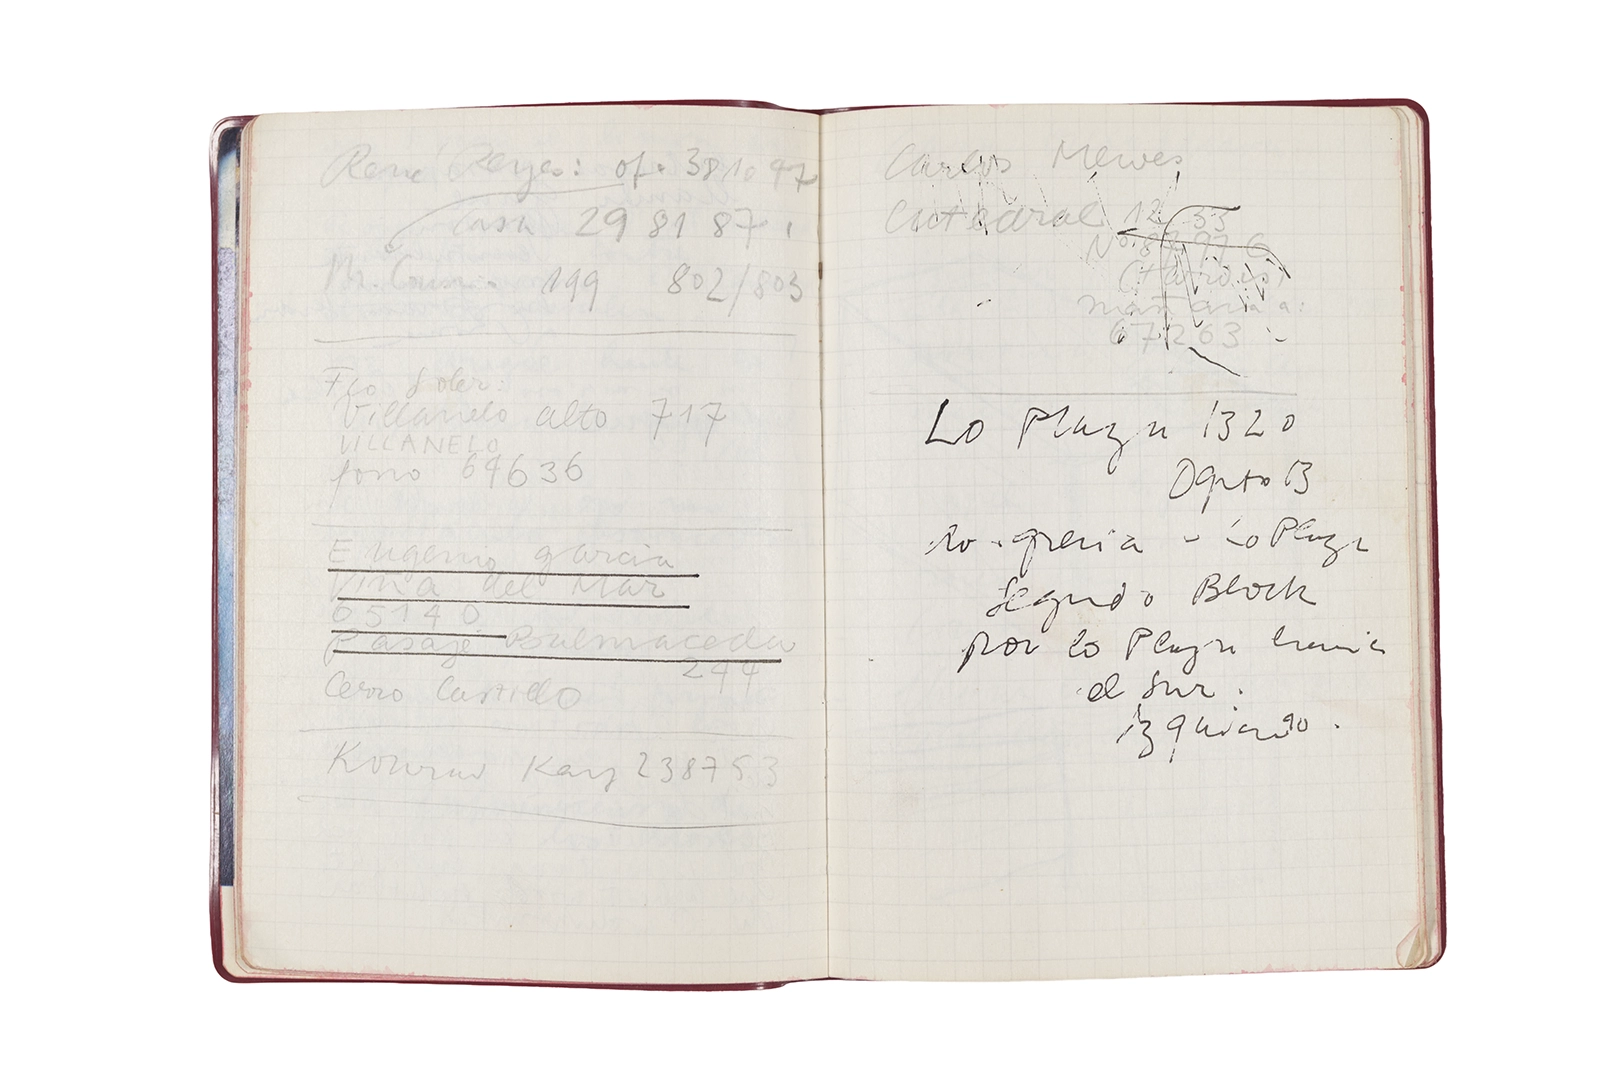 René Reyes: of. 381047
Casa 29 81 87
199 802/803
Fco Soler:
Villanelo alto 717
VILLANELO
fono 64636
Eugenio garcia
Viña del Mar
65140
Pasaje Balmaceda
244
Cerro Castillo
Kay 238753
Carlos Mewes
Catedral 1233
No. 87976
(tardes)
mañana a:
67263
Lo Plaza 1320
Dpto B
Lo Plaza
Segundo Block
por lo Plaza hacia
el Sur.
Izquierdo.